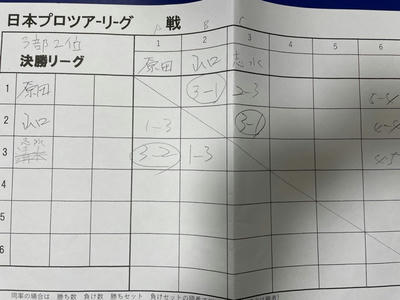 日本プロツアーリーグ 戦
A B C
3部2位
決勝リーグ
1 2 3 4 5 6
原田 山口 志水
1 原田 3-1 2-3 5-4
2 山口 1-3 3-1 4-4
3 志水 3-2 1-3 4-5
4
5
6
同率の場合は 勝ち数 負け数 勝ちセット 負けセットの